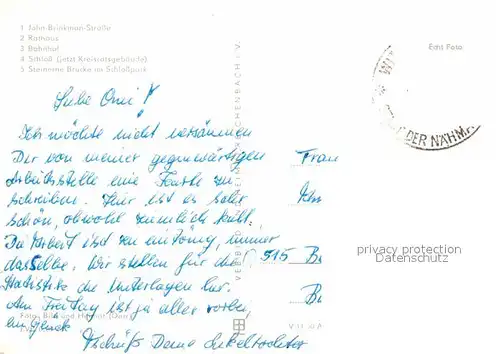 1 John-Brinkman-Straße
2 Rathaus
3 Bahnhof
4 Schloß (jetzt Kreisratsgebäude)
5 Steinerne Brücke im Schloßpark
Echt Foto
DER NÄHM
Liebe Omi!
Ich möchte nicht versäumen
Dir von meiner gegenwärtigen
Arbeitsstelle eine Karte zu
schreiben. Hier ist es sehr
schön, obwohl ziemlich kühl.
Die Arbeit ist so eintönig, immer
dasselbe. Wir stellen für die
die Unterlagen her.
Am Freitag ist ja alles vorbei,
zum Glück
Tschüß Deine Enkeltochter
Frau
515
privacy protection
Datenschutz
Foto: Bild und Heimat
VERLAG
REICHENBACH i. V.
V 11